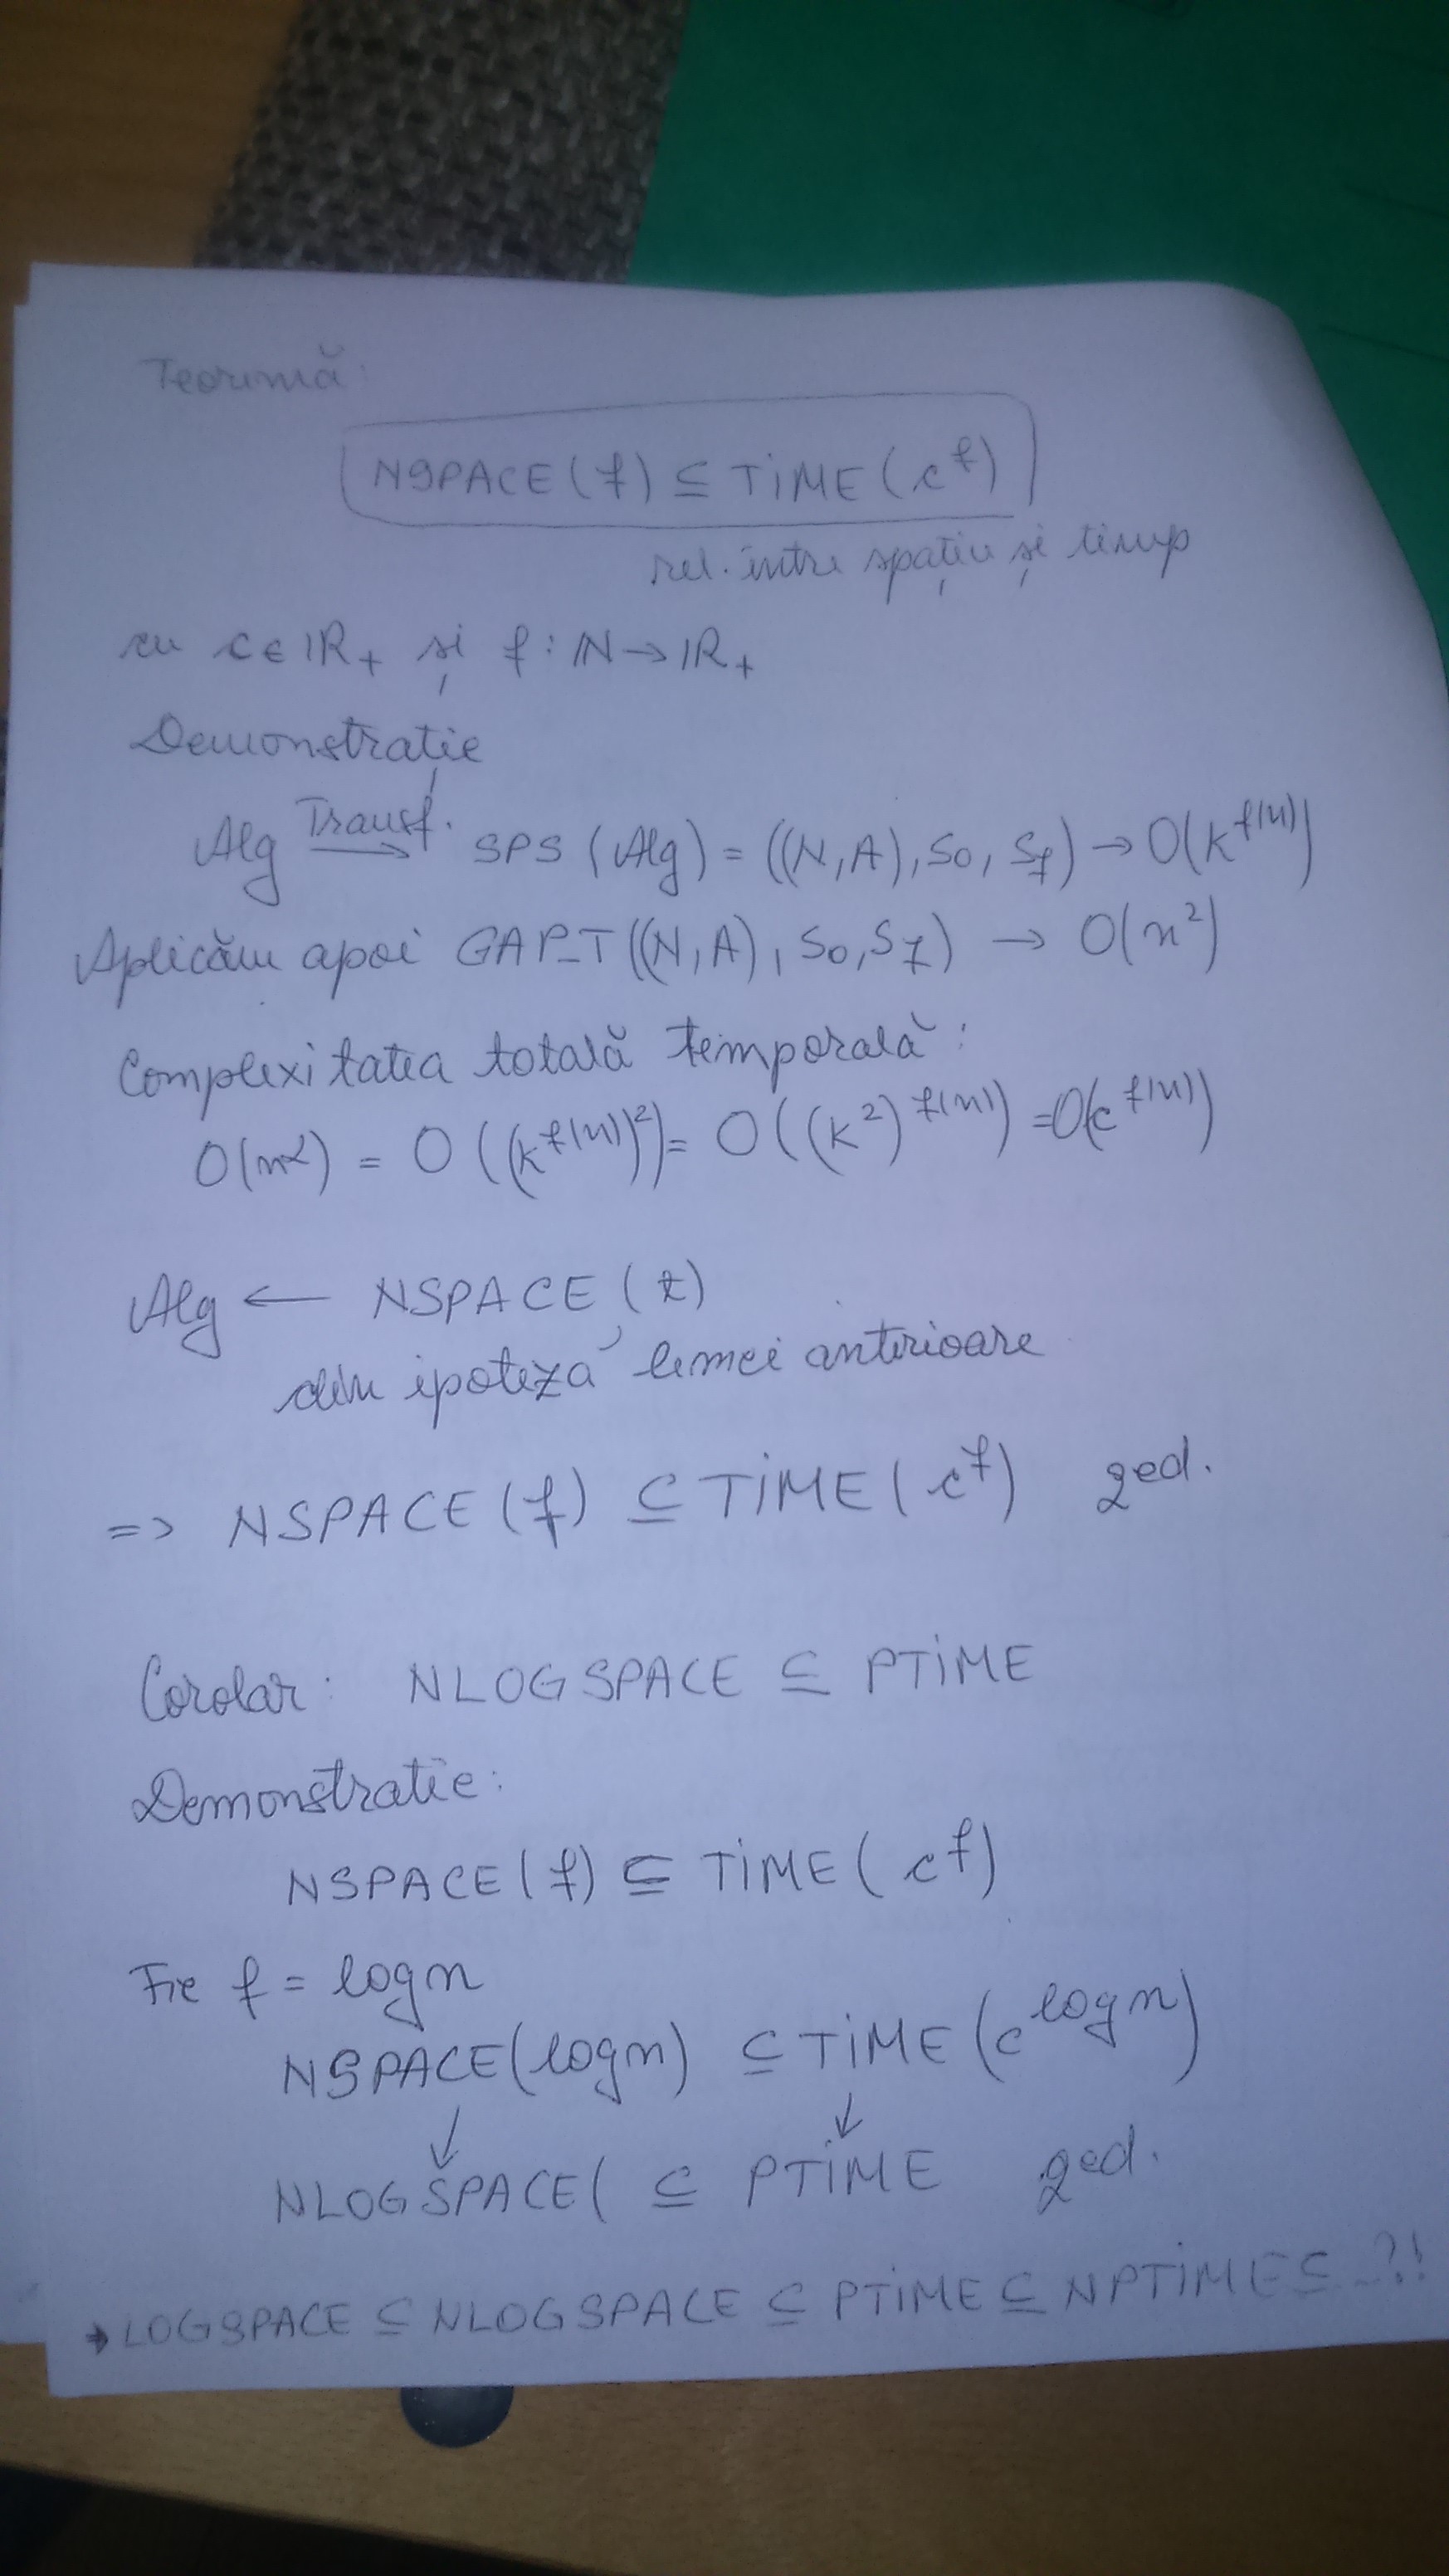 Teoremă:
NSPACE(f) ⊆ TIME(c^f)
rel. între spațiu și timp
cu c∈ℝ₊ și f: ℕ→ℝ₊
Demonstrație
Alg —Transf.→ SPS (Alg) = ((N,A), S0, Sf) → O(k^f(n))
Aplicăm apoi GAP_T((N,A), S0, Sf) → O(n²)
Complexitatea totală temporală:
O(n²) = O((k^f(n))²) = O((k²)^f(n)) = O(c^f(n))
Alg ← NSPACE(f)
din ipoteza lemei anterioare
=> NSPACE(f) ⊆ TIME(c^f) qed.
Corolar: NLOGSPACE ⊆ PTIME
Demonstratie:
NSPACE(f) ⊆ TIME(c^f)
Fie f = logn
NSPACE(logn) ⊆ TIME(c^logn)
↓ ↓
NLOGSPACE( ⊆ PTIME qed.
→ LOGSPACE ⊆ NLOGSPACE ⊆ PTIME ⊆ NPTIME ⊆ ..?!